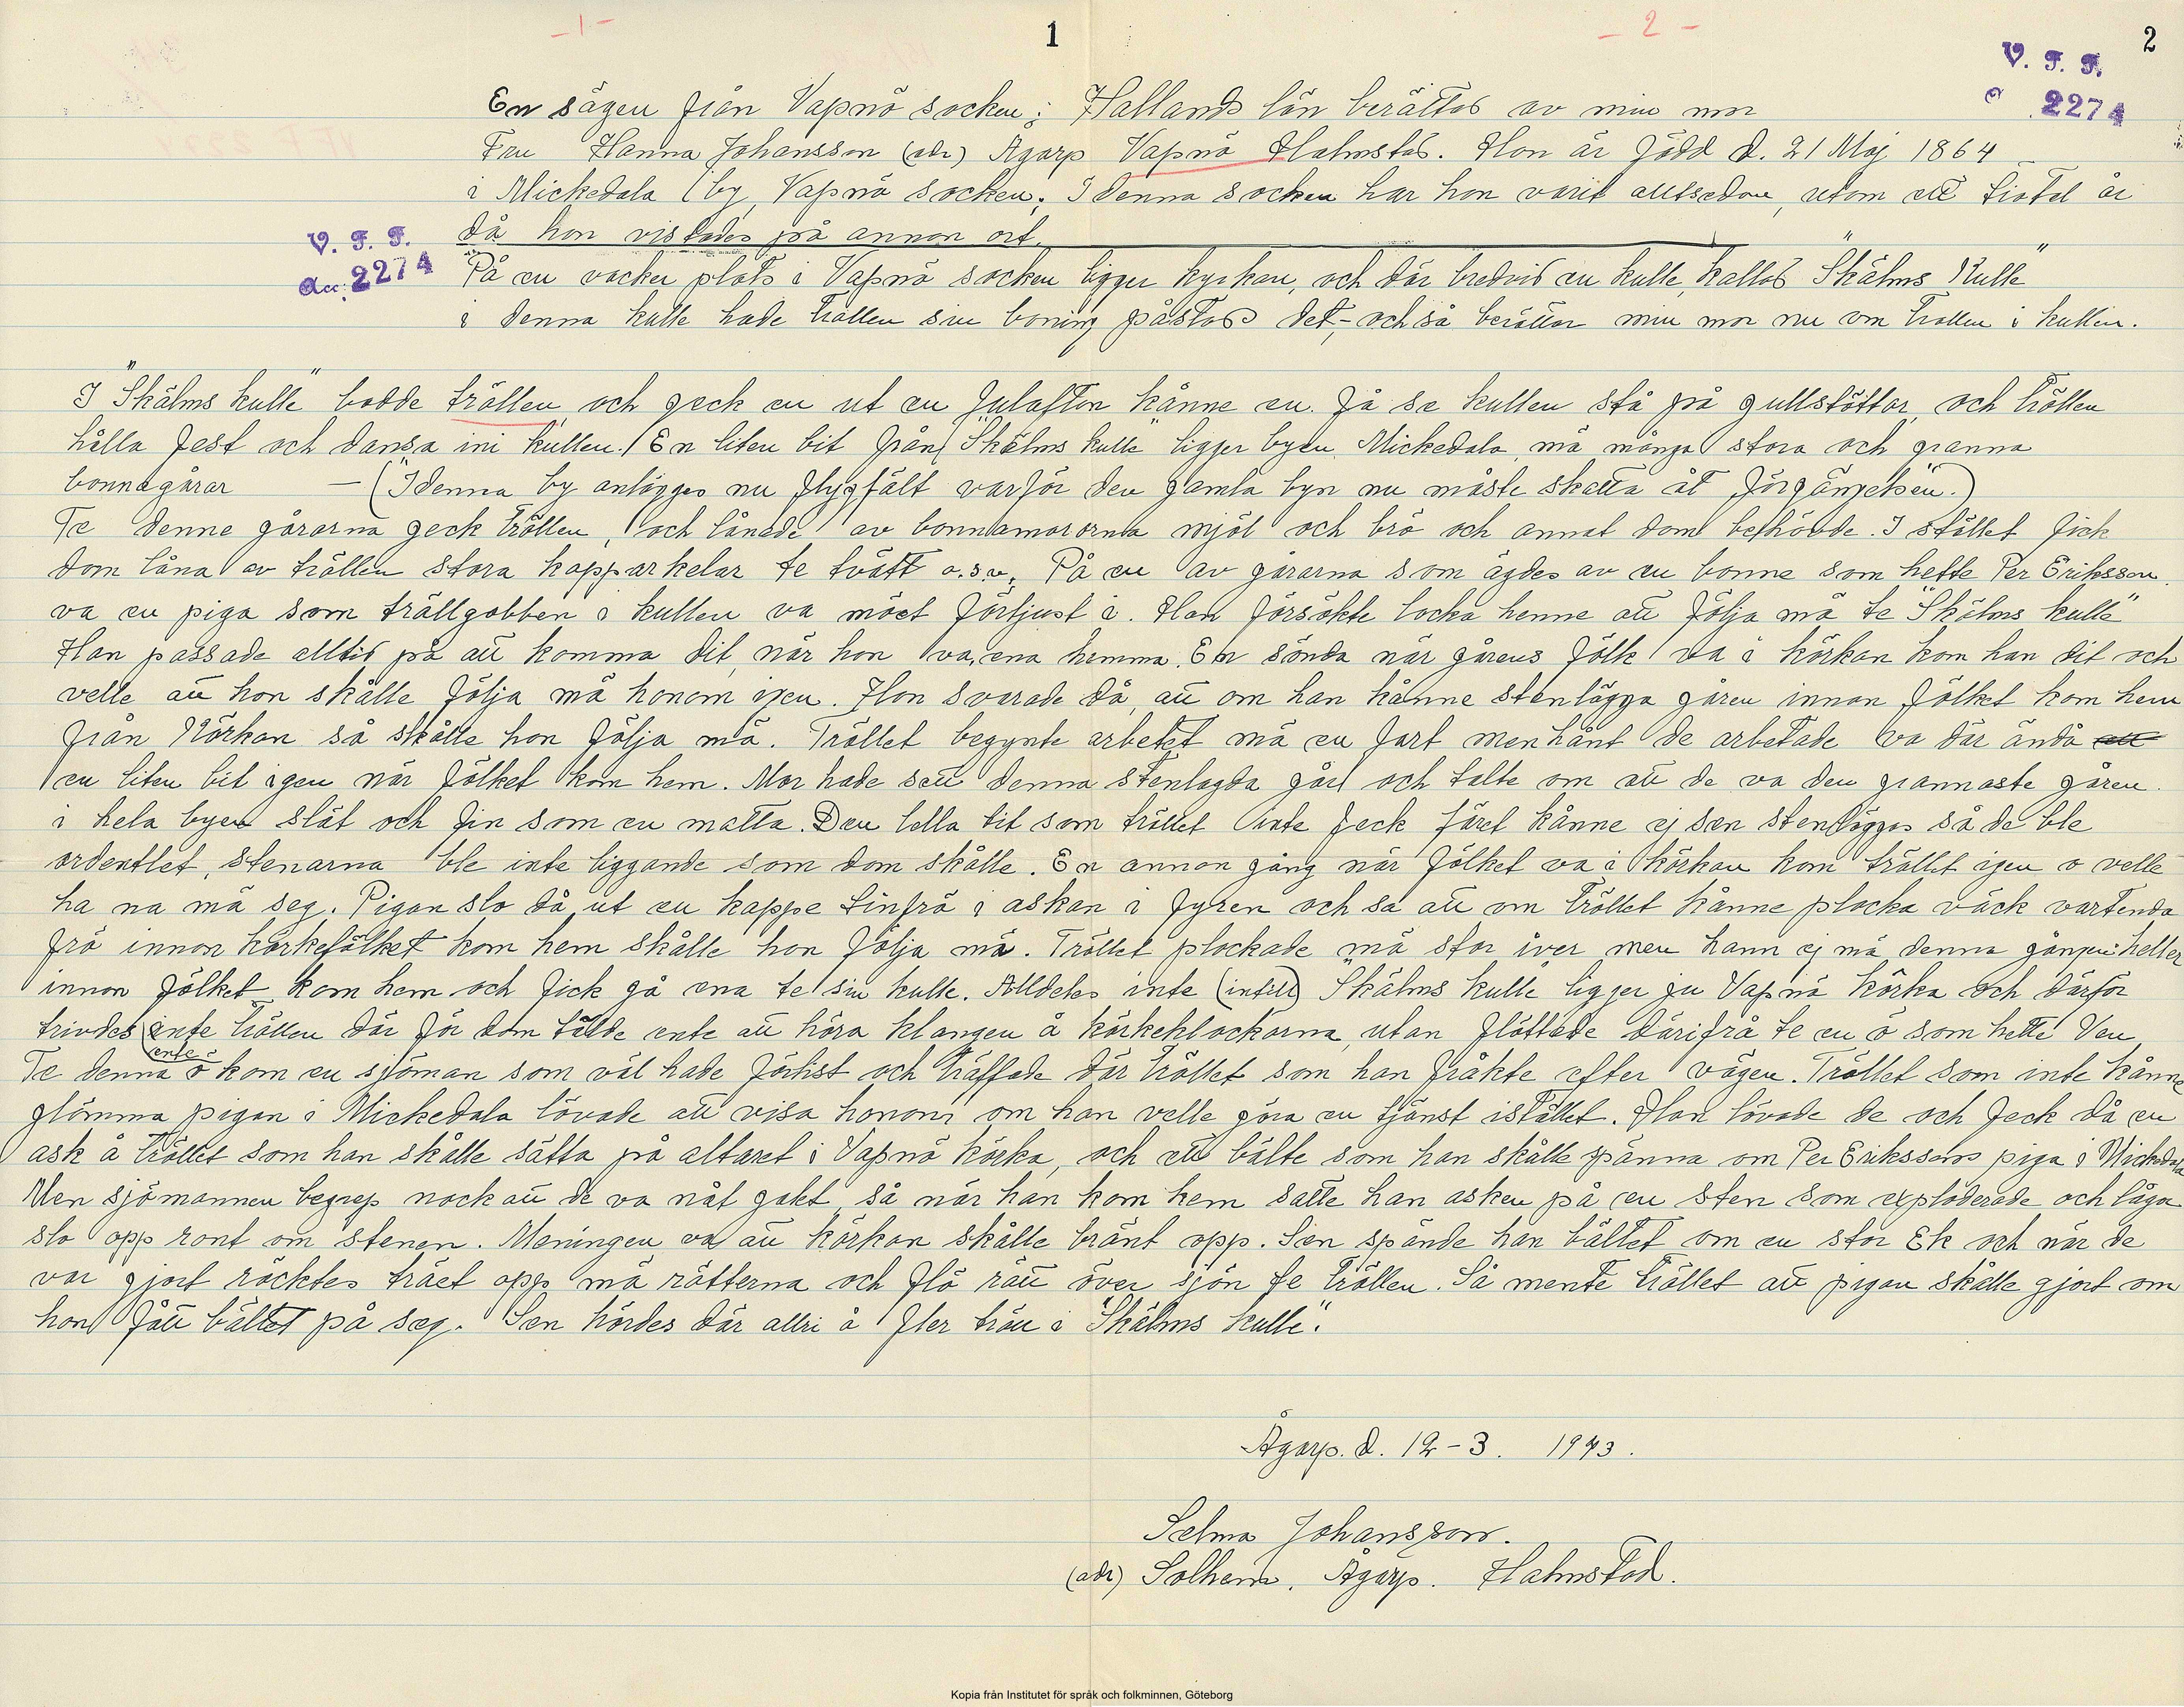 - 1 -
1
- 2 -
2
V. F. F.
2274
En sägen från Vapnö socken; Hallands län berättad av min mor
Fru Hanna Johansson (adr) Ågarp Vapnö Halmstad. Hon är född d. 21 Maj 1864
i Mickedala by, Vapnö socken. I denna socken har hon varit alltsedan, utom ett tiotal år
då hon vistades på annan ort.
V. F. F.
Acc. 2274
På en vacker plats i Vapnö socken ligger kyrkan, och där bredvid en kulle, kallad "Skälms Kulle"
i denna kulle hade trollen sin boning påstås det,- och så berättar min mor nu om trollen i kullen.
I "Skälms kulle" bodde trållen och geck en ut en Julafton kånne en få se kullen stå på gullstöttor, och trållen
hålla fest och dansa ini kullen. En liten bit från "Skälms kulle" ligger byen Mickedala, må många stora och granna
bonnagårar - (I denna by anlägges nu flygfält varför den gamla byn nu måste skatta åt förgängelsen.)
Te denne gårarna geck trållen, och lånade av bonnamororna mjöl och brö och annat dom behövde. I stället fick
dom låna av trållen stora kopparkelar te tvätt o.s.v. På en av gårarna som ägdes av en bonne som hette Per Eriksson
va en piga som trållgobben i kullen va möet förtjust i. Han försökte locka henne att följa må te "Skälms kulle"
Han passade alltid på att komma dit, när hon va ena hemma. En sönda när gårens fölk va i körkan kom han dit och
velle att hon skålle följa må honom igen. Hon svarade då, att om han kånne stenlägga gåren innan fölket kom hem
från Körkan så skålle hon följa må. Trållet begynte arbetet må en fart men hånt de arbetade va där ändå
en liten bit igen när fölket kom hem. Mor hade sett denna stenlagda går och talte om att de va den grannaste gåren
i hela byen slät och fin som en matta. Den lella bit som trållet inte feck färet kånne ej sen stenläggas så de ble
ordentlet, stenarna ble inte liggande som dom skålle. En annan gång när fölket va i körkan kom trållet igen o velle
ha na må seg. Pigan slo då ut en kappe linfrö i askan i fyren och sa att om trållet kånne plocka väck vartenda
frö innan körkefölket kom hem skålle hon följa må. Trållet plockade må stor iver men hann ej må denna gången heller
innan fölket kom hem och fick gå ena te sin kulle. Alldeles inte (intill) "Skälms kulle" ligger ju Vapnö körka och därför
trivdes ente trållen där för dom tålde ente att höra klangen å körkeklockorna, utan flöttade därifrå te en ö som hette Ven
(ente)
Te denna ö kom en sjöman som väl hade förlist och träffade där trållet som han fråkte efter vägen. Trållet som inte kånne
glömma pigan i Mickedala lövade att visa honom om han velle göra en tjänst istället. Han lövade de och feck då en
ask å trållet som han skålle sätta på altaret i Vapnö körka, och ett bälte som han skålle spänna om Per Erikssons piga i Mickedala
Men sjömannen begrep nock att de va nåt galet, så når han kom hem satte han asken på en sten som exploderade och låga
slo opp ront om stenen. Meningen va att körkan skålle bränt opp. Sen spände han bältet om en stor Ek och när de
var gjort röcktes träet opp må rötterna och flö rätt över sjön te trållen. Så mente trållet att pigan skålle gjort om
hon fått bältet på seg. Sen hördes där allri å fler trån i "Skälms kulle".
Ågarp. d. 12-3. 1943.
Selma Johansson.
(adr) Solhem. Ågarp. Halmstad.
Kopia från Institutet för språk och folkminnen, Göteborg